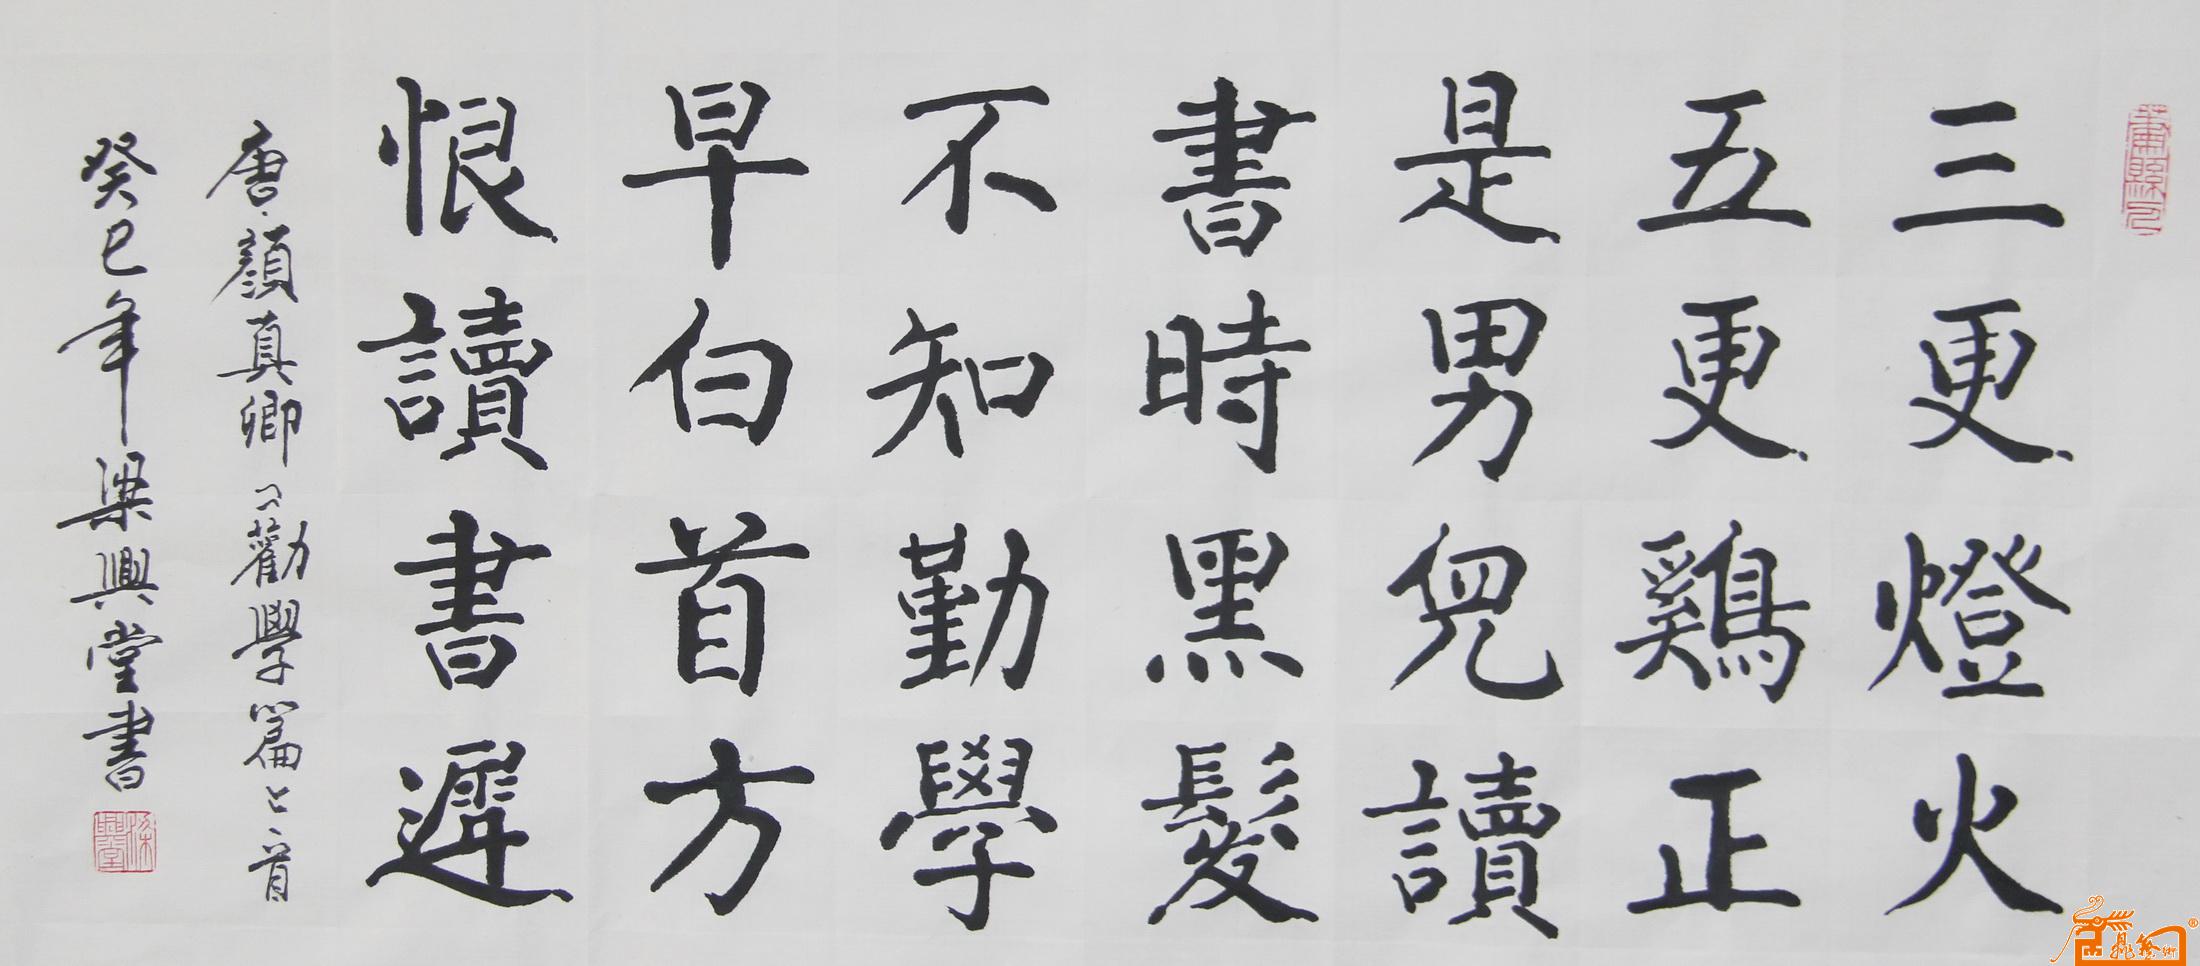 蕭縣人
三更燈火
五更鷄正
是男兒讀
書時黑髮
不知勤學
早白首方
恨讀書遲
唐·顏真卿《勸學篇》一首
癸巳年梁興堂書
梁興堂